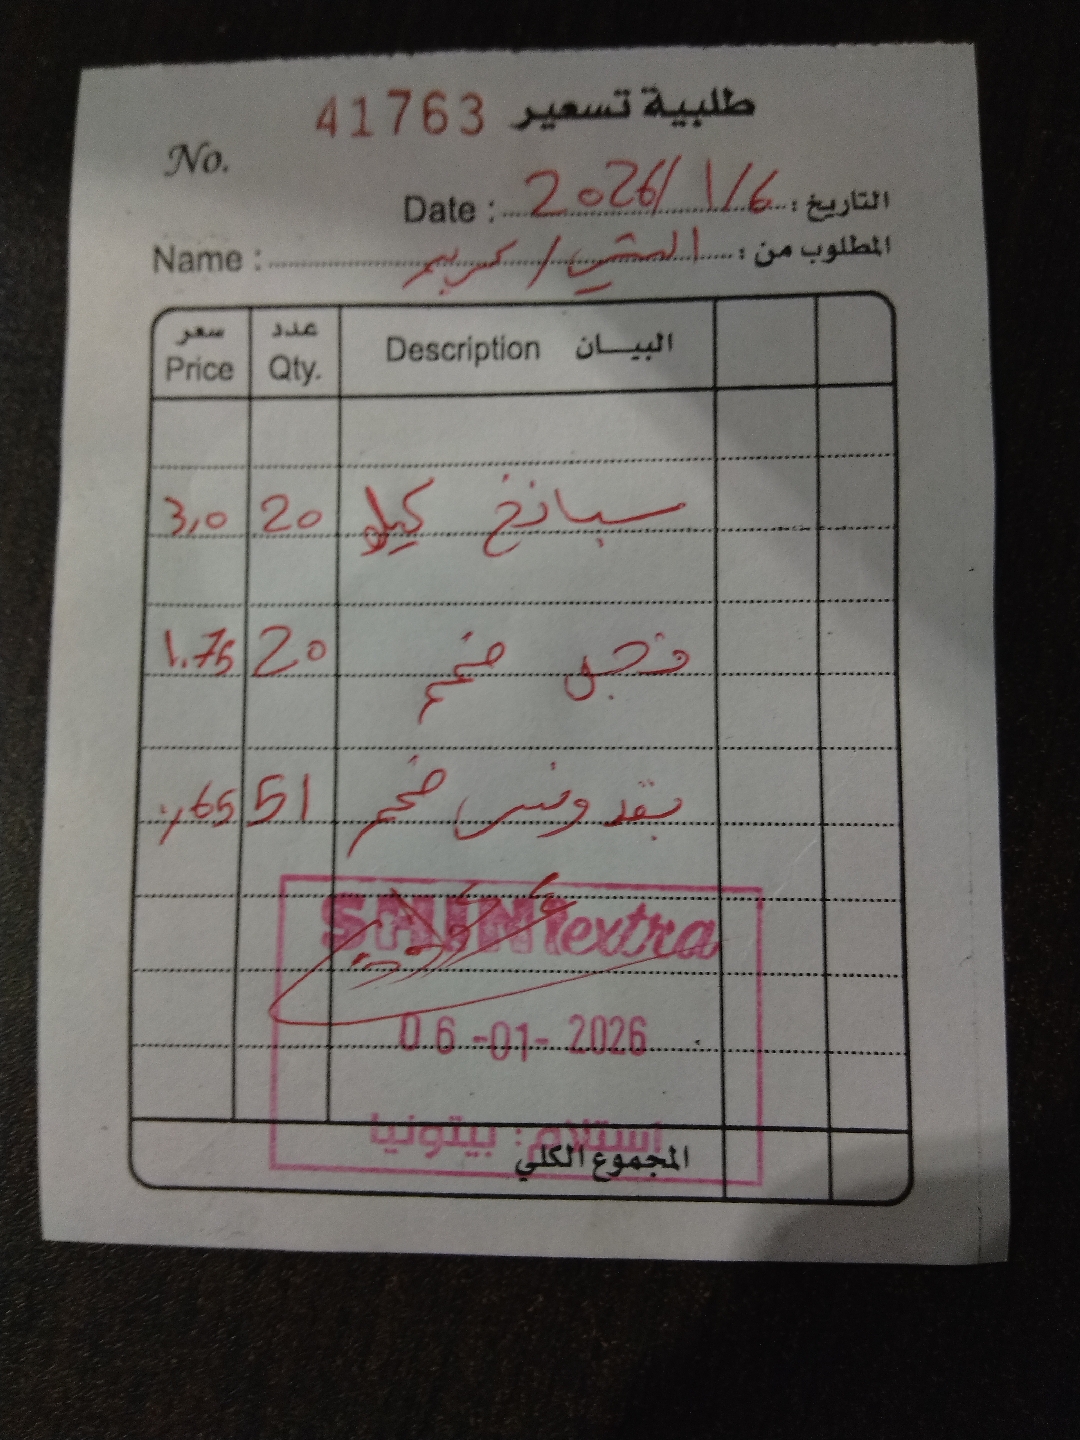 طلبية تسعير 41763
No.
التاريخ : 2026/1/6 Date :
المطلوب من : المشني / كريم Name :
البيـــان Description عدد Qty. سعر Price
سبانخ كيلو 20 3,0
فجل ضخم 20 1.75
بقدونس ضخم 51 1,65
extra
06-01-2026
استلام : بيتونيا
المجموع الكلي